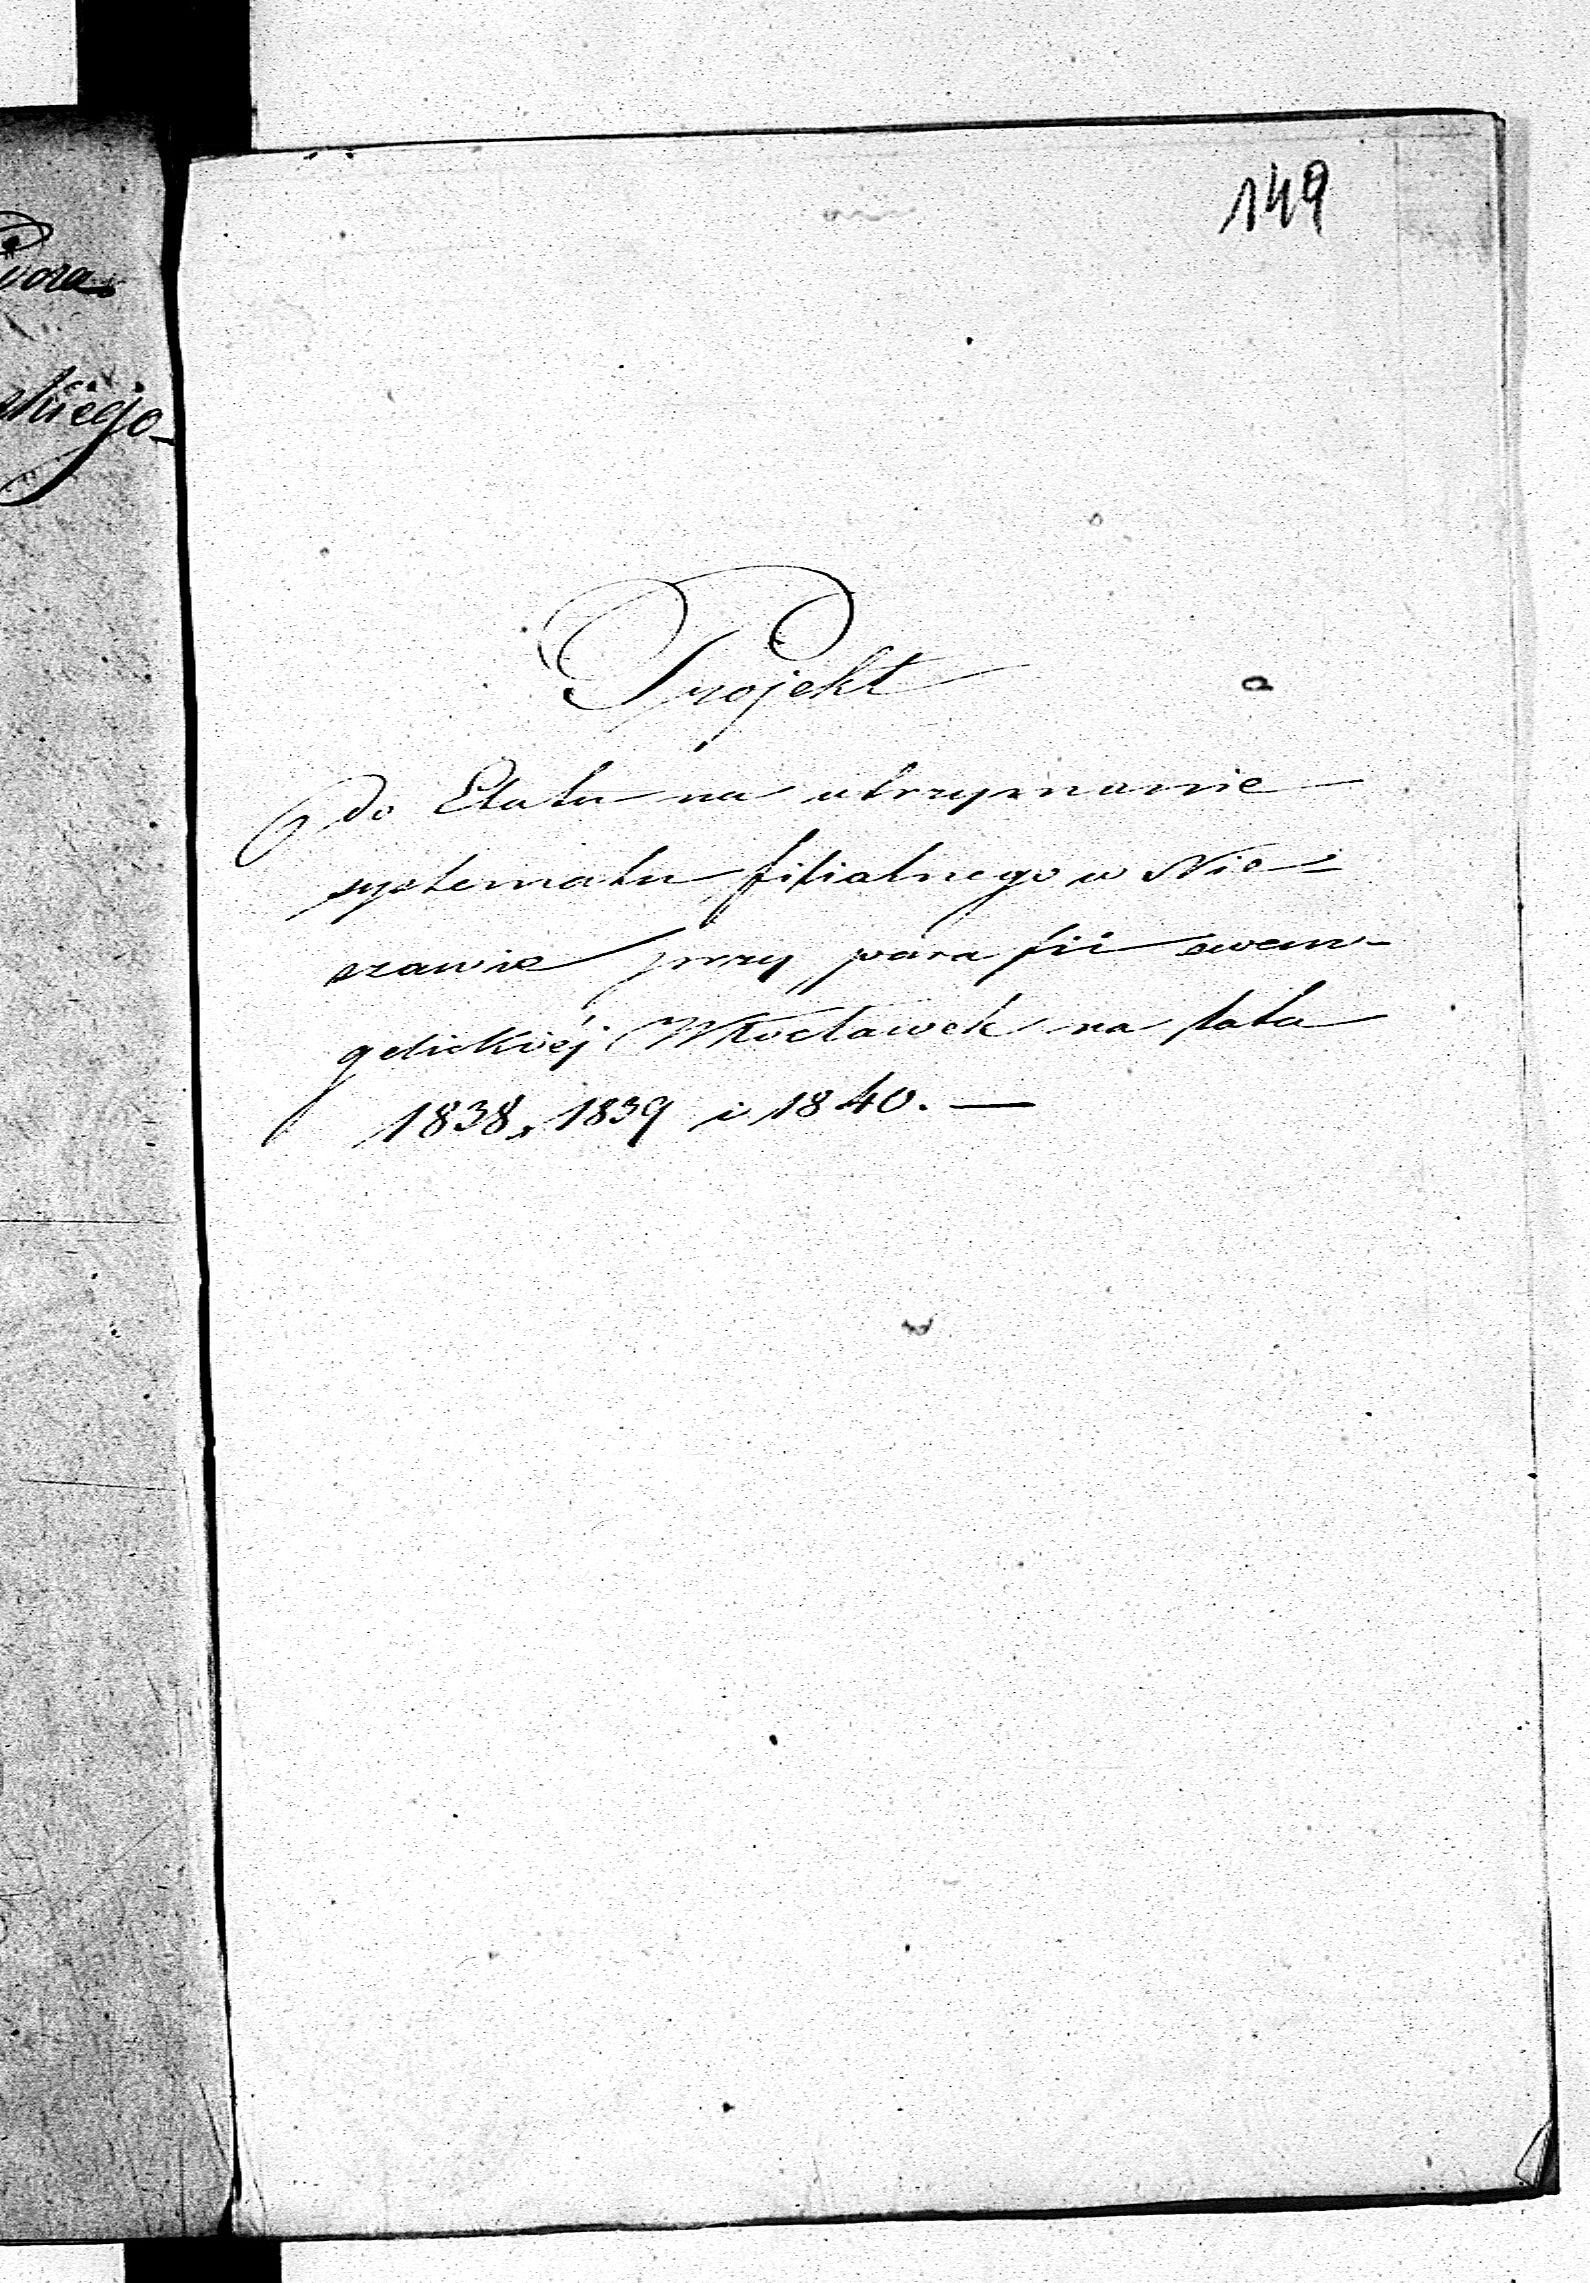 149
Projekt
do Etatu na utrzymanie
systematu filialnego w Nie-
szawie przy parafii ewan-
gelickiéj Włocławek na lata
1838, 1839 i 1840. —